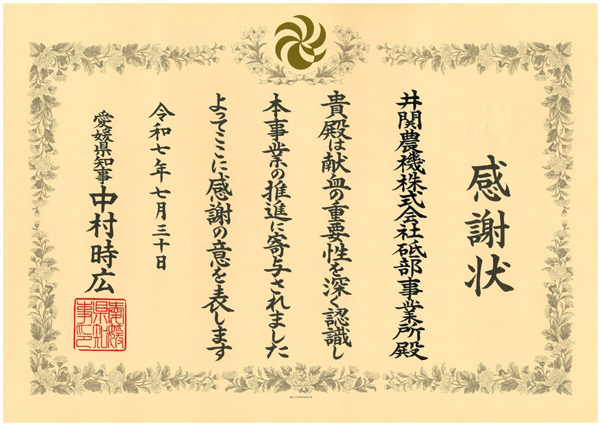 感謝状
井関農機株式会社砥部事業所殿
貴殿は献血の重要性を深く認識し
本事業の推進に寄与されました
よってここに感謝の意を表します
令和七年七月三十日
愛媛県知事 中村時広
愛媛県知事印